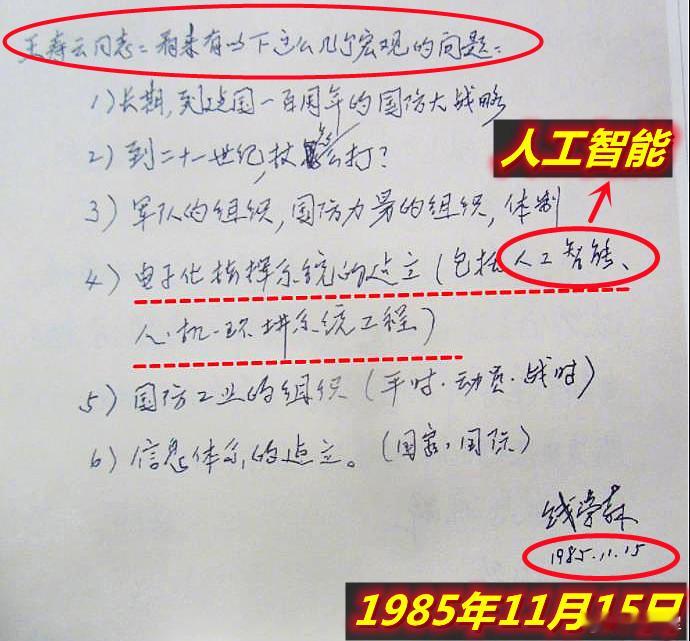 王寿云同志：看来有以下这么几个宏观的问题：
1）长期，到建国一百周年的国防大战略
2）到二十一世纪，仗怎么打？
人工智能
3）军队的组织，国防力量的组织，体制
4）电子化指挥系统的建立（包括人工智能、
人-机-环境系统工程）
5）国防工业的组织（平时·动员·战时）
6）信息体系的建立。（国家，国际）
钱学森
1985.11.15
1985年11月15日